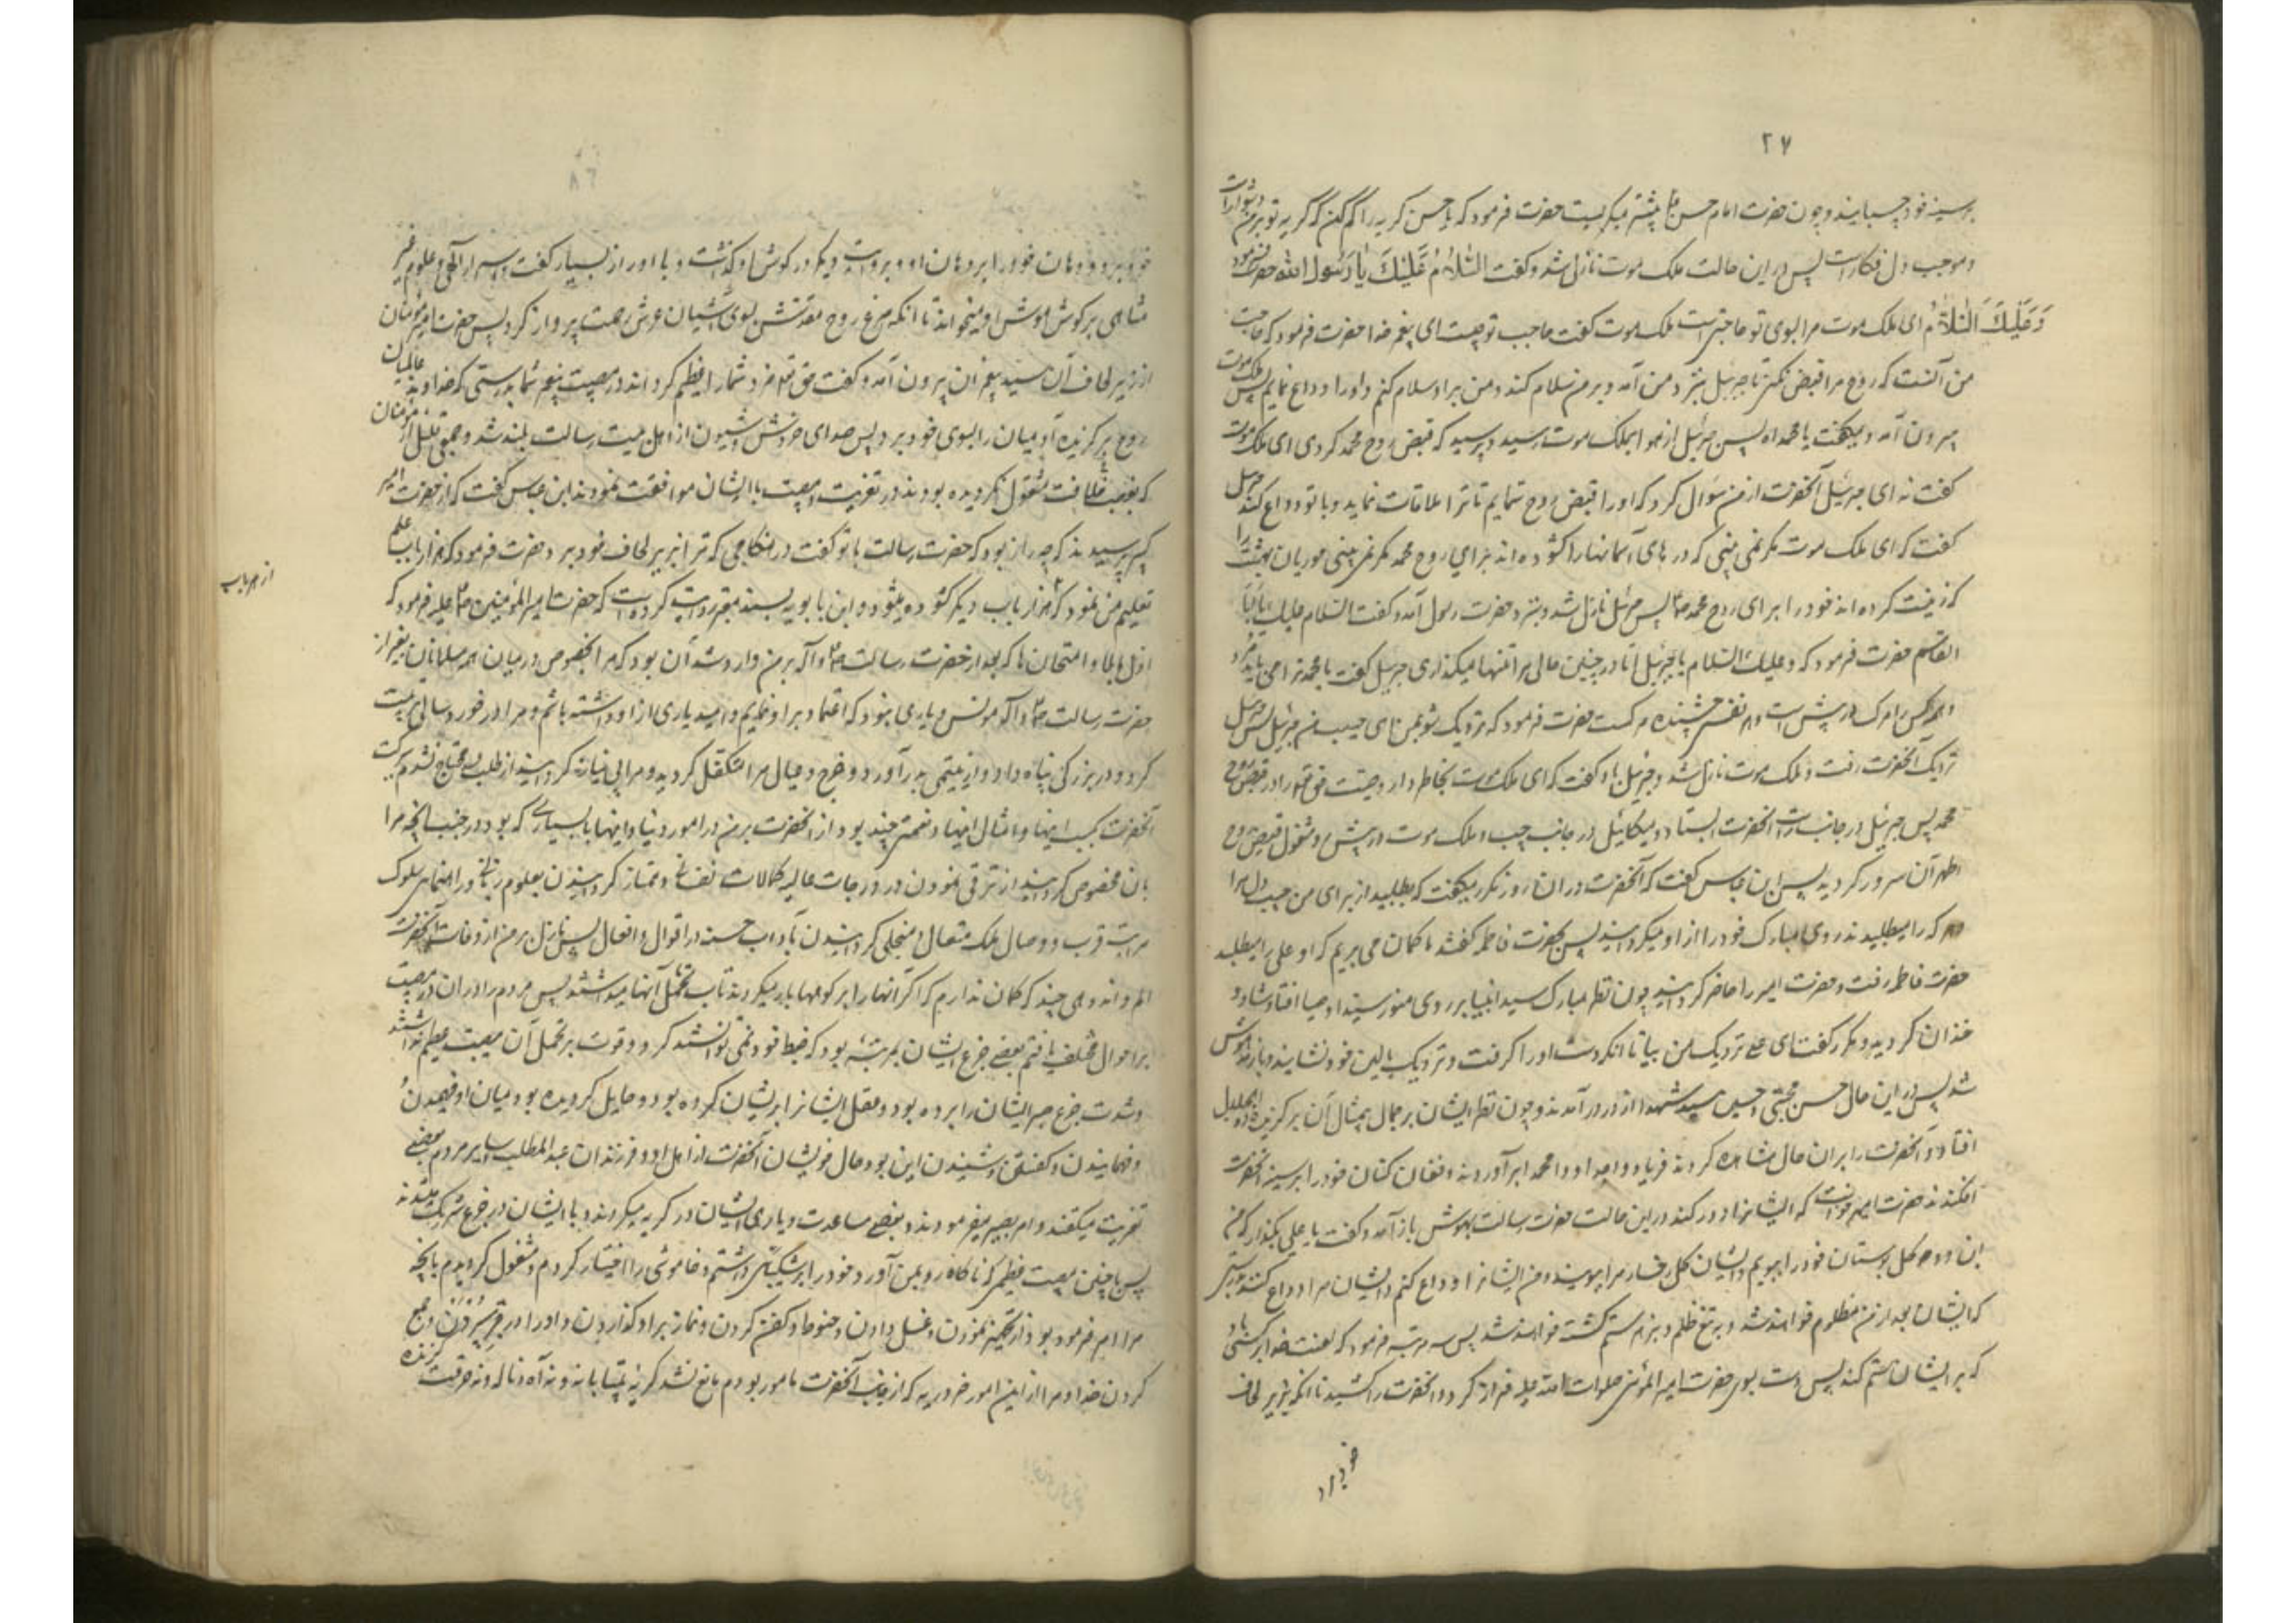 ۲۷
بر سینه خود چسبانید و چون حضرت امام حسن ع بیشتر میگریست حضرت فرمود که یا حسن گریه را کم کن که گریه تو بر من دشوار است
و موجب دل فکار است پس در این حالت ملک موت نازل شد و گفت السَّلامُ عَلَیْکَ یا رَسُولَ الله حضرت فرمود
وَ عَلَیْکَ السَّلامُ ای ملک موت مرا بسوی تو حاجتی است ملک موت گفت حاجت تو چیست ای پیغمبر خدا حضرت فرمود که حاجت
من آنست که روح مرا قبض نکنی تا جبرئیل بنزد من آمده بر من سلام کند و من بر او سلام کنم و او را وداع نمایم پس ملک موت
بیرون آمد و میگفت یا محمداه پس جبرئیل از هوا بملک موت رسید و پرسید که قبض روح محمد کردی ای ملک موت
گفت نه ای جبرئیل آنحضرت از من سؤال کرد که او را قبض روح ننمایم تا ترا ملاقات نماید و با تو وداع کند جبرئیل
گفت که ای ملک موت مگر نمی بینی که در های آسمانها را کشوده اند برای روح محمد مگر نمی بینی حوریان بهشت را
که زینت کرده اند خود را برای روح محمد ص پس جبرئیل نازل شد و بنزد حضرت رسول آمد و گفت السلام علیک یا ابا
القاسم حضرت فرمود که و علیک السلام یا جبرئیل آیا در چنین حالی مرا تنها میگذاری جبرئیل گفت یا محمد ترا می باید مرد
و همه کس را مرگ در پیش است و هر نفس چشنده مرگست حضرت فرمود که نزدیک شو بمن ای حبیب من جبرئیل پس جبرئیل
نزدیک آنحضرت رفت و ملک موت نازل شد و جبرئیل باو گفت که ای ملک موت بخاطر دار وصیت حق تعالی را در قبض روح
محمد پس جبرئیل در جانب راست آنحضرت ایستاد و میکائیل در جانب چپ و ملک موت در پیش رو مشغول قبض روح
اطهر آن سرور گردید پس ابن عباس گفت که آنحضرت در آن روز مکرر میگفت که بطلبید از برای من حبیب دل مرا
و هر که را میطلبیدند روی مبارک خود را از او میگردانید پس بحضرت فاطمه گفتند ما گمان می بریم که او علی را میطلبد
حضرت فاطمه رفت و حضرت امیر را حاضر گردانید چون نظر مبارک سید انبیا بر روی منور سید اوصیا افتاد شاد و
خندان گردید و مکرر گفت ای علی نزدیک من بیا تا آنکه دست او را گرفت و نزدیک بالین خود نشانید و باز مدهوش
شد پس در این حال حسن مجتبی و حسین سید شهدا از در در آمدند و چون نظر ایشان بر جمال بیمثال آن برگزیده ذوالجلال
افتاد و آنحضرت را بر آن حال مشاهده کردند فریاد وا جداه و وا محمداه برآوردند و فغان کنان خود را بر سینه آنحضرت
افکندند حضرت امیر خواست که ایشانرا دور کند در این حالت حضرت رسالت بهوش باز آمد و گفت یا علی بگذار که من
این دو گل بوستان خود را ببویم و ایشان گل رخسار مرا ببویند و من ایشانرا وداع کنم و ایشان مرا وداع کنند بدرستی
که ایشان بعد از من مظلوم خواهند شد و به تیغ ظلم و بزهر ستم کشته خواهند شد پس سه مرتبه فرمود که لعنت خدا بر کسی باد
که بر ایشان ستم کند پس دست بسوی حضرت امیر المؤمنین صلوات الله علیه دراز کرد و آنحضرت را کشید تا آنکه بزیر لحاف
خود برد
خود برد و دهان خود را بر دهان او و بروایت دیگر در گوش او گذاشت و با او راز بسیار گفت و اسرار آلهی و علوم غیر
متناهی بر گوش هوش او میخواند تا آنکه مرغ روح مقدسش بسوی آشیان عرش رحمت پرواز کرد پس حضرت امیر مؤمنان
از زیر لحاف آن سید پیغمبران بیرون آمد و گفت حق تعالی مزد شما را عظیم گرداند در مصیبت پیغمبر شما بدرستی که خداوند عالمیان
روح برگزیده آدمیان را بسوی خود برد پس صدای خروش و شیون از اهل بیت رسالت بلند شد و جمعی قلیل از مؤمنان
که بغصب خلافت مشغول نگردیده بودند در تعزیت و مصیبت با ایشان موافقت نمودند ابن عباس گفت که از حضرت امیر
پرسیدند که چه راز بود که حضرت رسالت با تو گفت در هنگامی که ترا بزیر لحاف خود برد حضرت فرمود که هزار باب علم
تعلیم من نمود که از هر باب هزار باب دیگر کشوده میشود و ابن بابویه بسند معتبر روایت کرده است که حضرت امیر المؤمنین ص علیه فرمود که
از هر باب
اول بلاها و امتحان ها که بعد از حضرت رسالت ص و آله بر من وارد شد آن بود که مرا بخصوص در میان همه مسلمانان بغیر از
حضرت رسالت ص و آله مونس و یاری نبود که اعتماد بر او نمایم و امید یاری از او داشته باشم و مرا در خورد سالی تربیت
کرد و در بزرگی پناه داد و از یتیمی بدر آورد و خرج و عیال مرا متکفل گردید و مرا بی نیاز گردانید از طلب و محتاج نشدم ببرکت
آنحضرت بکسب اینها و امثال اینها نعمتی چند بود از آنحضرت بر من در امور دنیا و اینها با بسیاری که بود در جنب آنچه مرا
بآن مخصوص گردانید از ترقی نمودن در درجات عالیه کمالات نفسانی و ممتاز گردانیدن بعلوم ربانی و راهنمای سلوک
مراتب قرب و وصال ملک متعال و متحلی گردانیدن بآداب حسنه در اقوال و افعال پس نازل بر من از وفات آنحضرت
الم و اندوهی چند که گمان ندارم که اگر آنها را بر کوهها بار میکردند تاب تحمل آنها میداشتند پس مردم را در آن در مصیبت
بر احوال مختلف یافتم بعضی جزع ایشان بمرتبه بود که ضبط خود نمی توانستند کرد و قوت بر تحمل آن مصیبت عظیم نداشتند
و شدت جزع صبر ایشان را برده بود و عقل ایشانرا پریشان کرده بود و حایل گردیده بود میان او فهمیدن
و فهمانیدن و گفتن و شنیدن این بود حال خویشان آنحضرت از اهل او و فرزندان عبد المطلب و سایر مردم بعضی
تعزیت میگفتند و امر بصبر میفرمودند و بعضی مساعدت و یاری ایشان در گریه میکردند و با ایشان در جزع شریک میشدند
پس با چنین مصیبت عظیمی که ناگاه رو بمن آورد خود را بر شکیبائی داشتم و خاموشی را اختیار کردم و مشغول گردیدم بآنچه
مرا امر فرموده بود از تجهیز نمودن و غسل دادن و حنوط و کفن کردن و نماز بر او گذاردن و او را در قبر سپردن و جمع
کردن خدا و مرا از این امور ضروریه که از جانب آنحضرت مامور بودم مانع نشد گریه بیتابانه و نه آه و ناله و نه حرقت گزنده